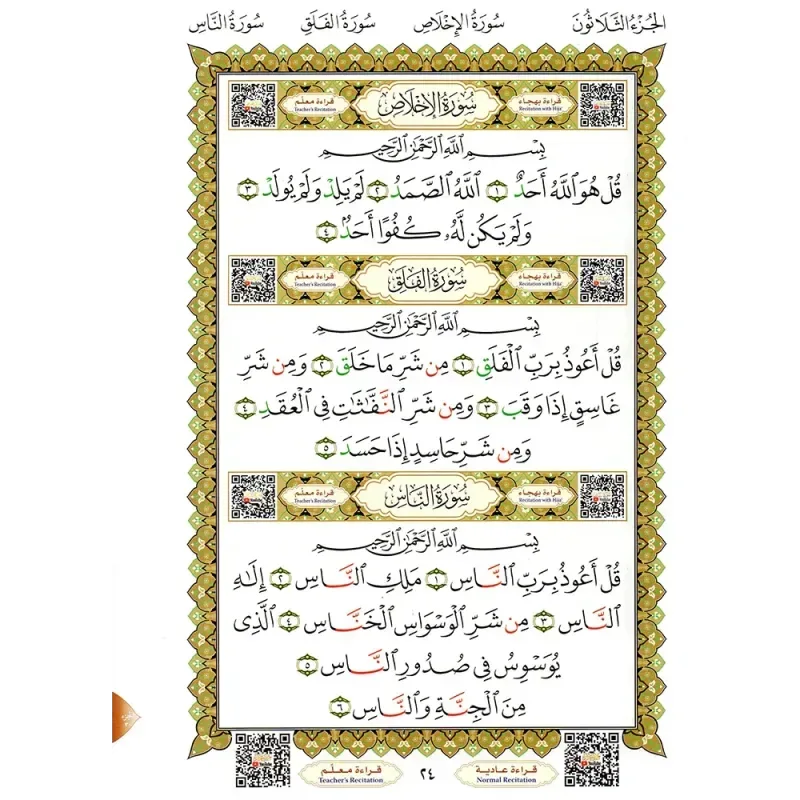 الجزء الثلاثون سورة الإخلاص سورة الفلق سورة الناس
قراءة بهجاء Recitation with Hija' سُورَةُ الإِخْلَاصِ قراءة معلم Teacher's Recitation
بِسْمِ اللَّهِ الرَّحْمَٰنِ الرَّحِيمِ
قُلْ هُوَ اللَّهُ أَحَدٌ ١ اللَّهُ الصَّمَدُ ٢ لَمْ يَلِدْ وَلَمْ يُولَدْ ٣
وَلَمْ يَكُن لَّهُۥ كُفُوًا أَحَدٌۢ ٤
قراءة بهجاء Recitation with Hija' سُورَةُ الفَلَقِ قراءة معلم Teacher's Recitation
بِسْمِ اللَّهِ الرَّحْمَٰنِ الرَّحِيمِ
قُلْ أَعُوذُ بِرَبِّ الْفَلَقِ ١ مِن شَرِّ مَا خَلَقَ ٢ وَمِن شَرِّ
غَاسِقٍ إِذَا وَقَبَ ٣ وَمِن شَرِّ النَّفَّٰثَٰتِ فِي الْعُقَدِ ٤
وَمِن شَرِّ حَاسِدٍ إِذَا حَسَدَ ٥
قراءة بهجاء Recitation with Hija' سُورَةُ النَّاسِ قراءة معلم Teacher's Recitation
بِسْمِ اللَّهِ الرَّحْمَٰنِ الرَّحِيمِ
قُلْ أَعُوذُ بِرَبِّ النَّاسِ ١ مَلِكِ النَّاسِ ٢ إِلَٰهِ
النَّاسِ ٣ مِن شَرِّ الْوَسْوَاسِ الْخَنَّاسِ ٤ الَّذِي
يُوَسْوِسُ فِي صُدُورِ النَّاسِ ٥
مِنَ الْجِنَّةِ وَالنَّاسِ ٦
قراءة عادية Normal Recitation ٢٤ قراءة معلّم Teacher's Recitation